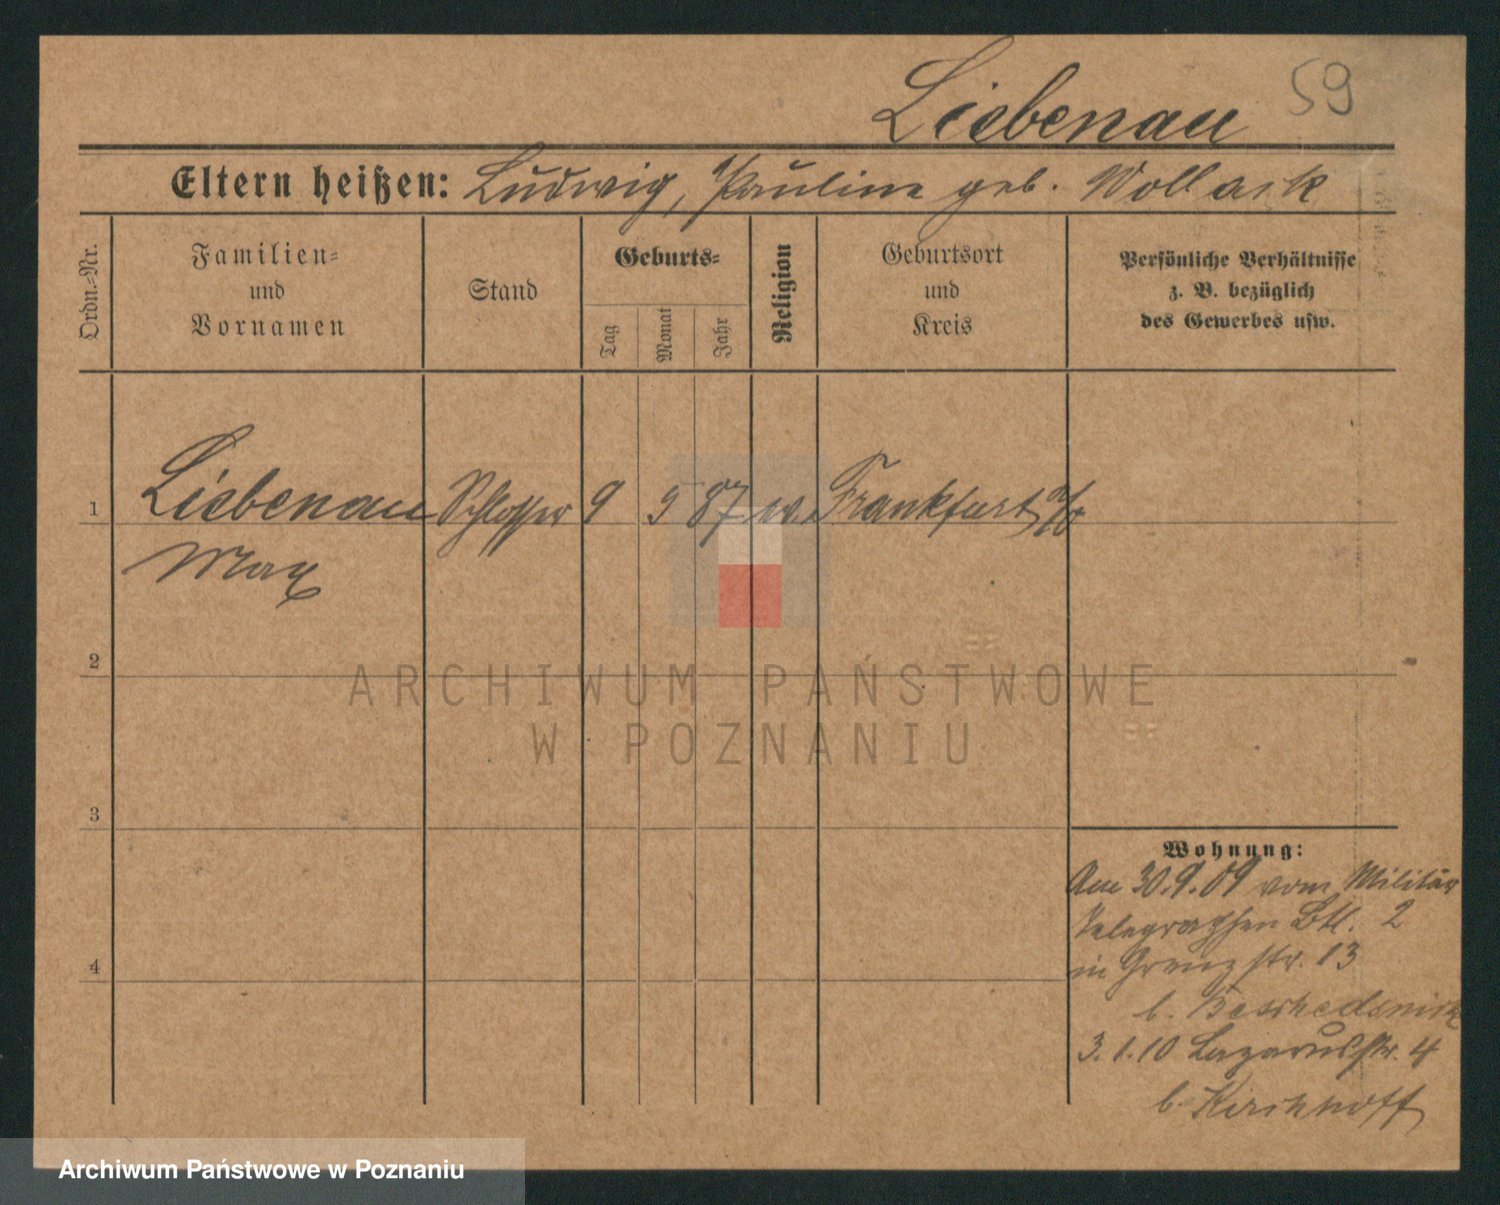 Liebenau 59
Eltern heißen: Ludwig, Pauline geb. Wollack
Ordn.=Nr.
Familien=
und
Vornamen
Stand
Geburts=
Tag
Monat
Jahr
Religion
Geburtsort
und
Kreis
Persönliche Verhältnisse
z. B. bezüglich
des Gewerbes usw.
1 Liebenau Schlosser 9 5 87 ev. Frankfurt a/O
Max
2
3
4
Wohnung:
Am 30.9.09 vom Militär
Telegraphen Btl. 2
in Grenzstr. 13
b.
3.1.10 Lazarusstr. 4
b. Kirchhoff
ARCHIWUM PAŃSTWOWE
W POZNANIU
Archiwum Państwowe w Poznaniu